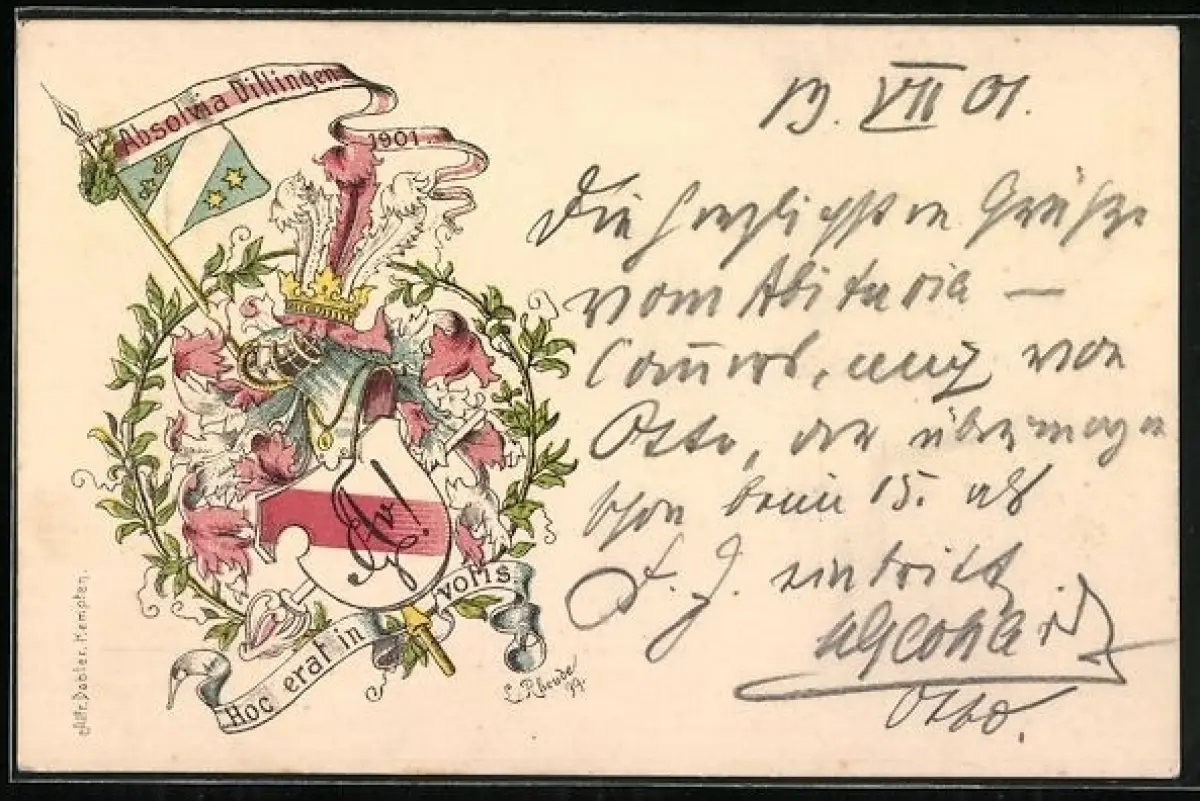 Absolvia Dillingen
1901.
Hoc erat in votis
L. Rheude
Alfr. Dabler. Kempten.
13. VII 01.
Die herzlichsten Grüße
vom Abituria —
Comers, auch von
Otto, der übermorgen
schon beim 15. als
E. J. eintritt
Otto.